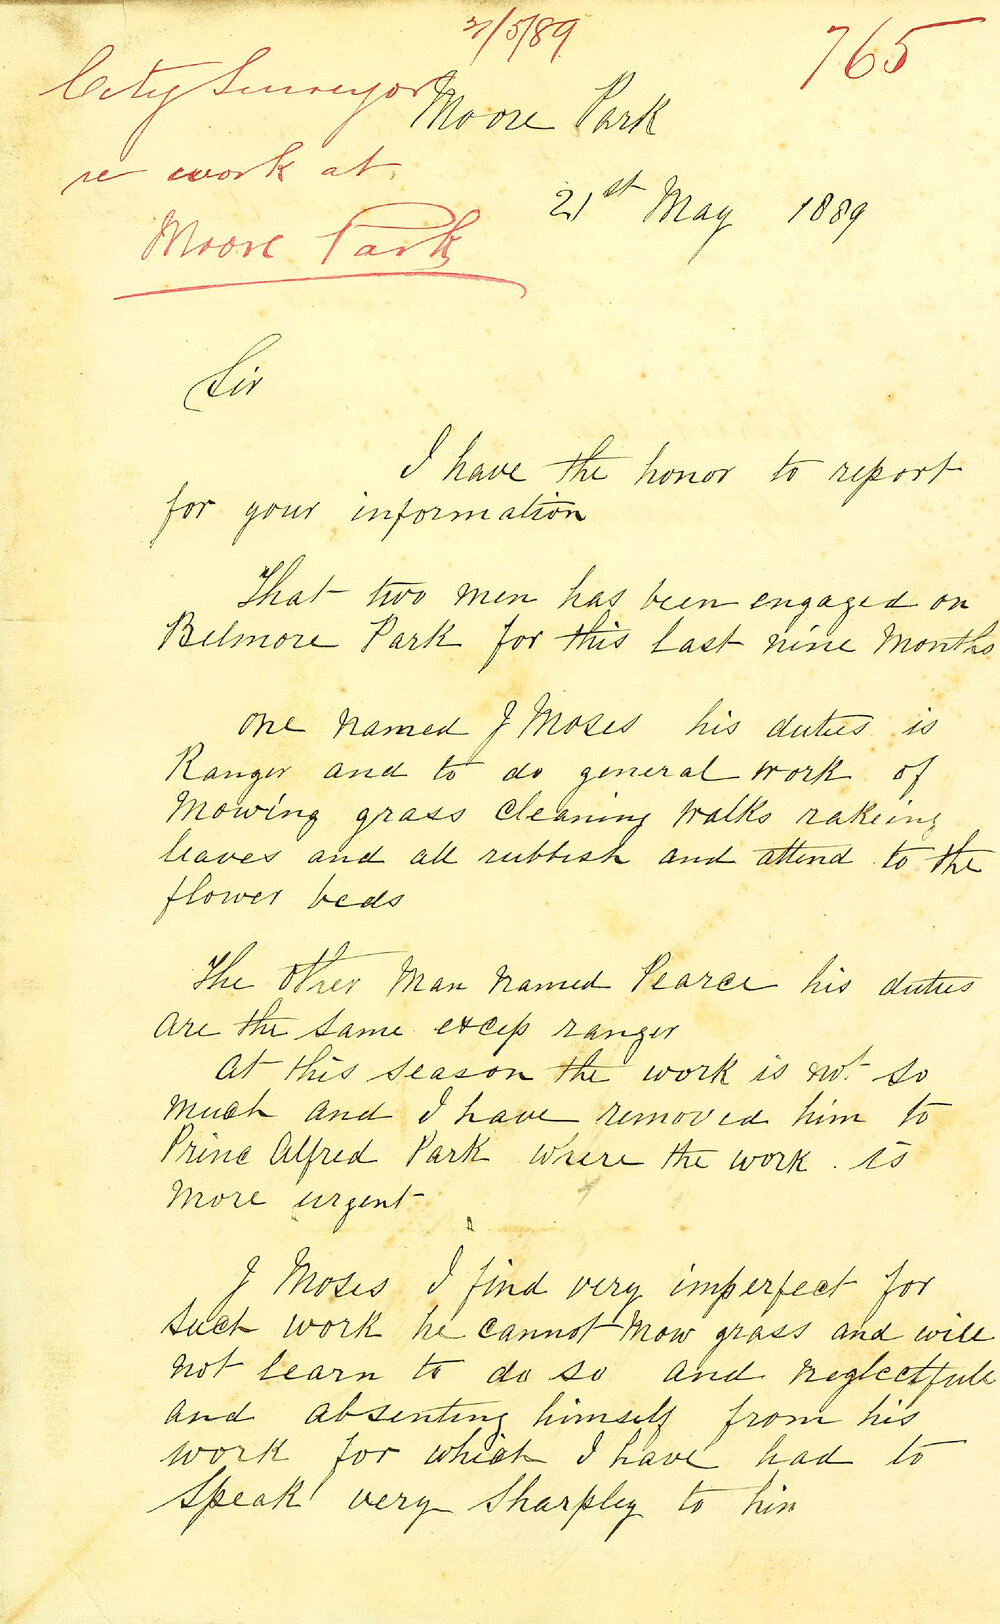 2/5/89
765
City Surveyor
re work at
Moore Park
Moore Park
21st May 1889
Sir
I have the honor to report
for your information
That two men has been engaged on
Belmore Park for this last nine Months
one named J Moses his duties is
Ranger and to do general work of
Mowing grass cleaning walks rakeing
leaves and all rubbish and attend to the
flower beds
The other Man named Pearce his duties
are the same excep ranger
at this season the work is not so
much and I have removed him to
Princ Alfred Park where the work is
More urgent
J Moses I find very imperfect for
such work he cannot Mow grass and will
not learn to do so and neglectfull
and absenting himself from his
work for which I have had to
speak very sharpley to him